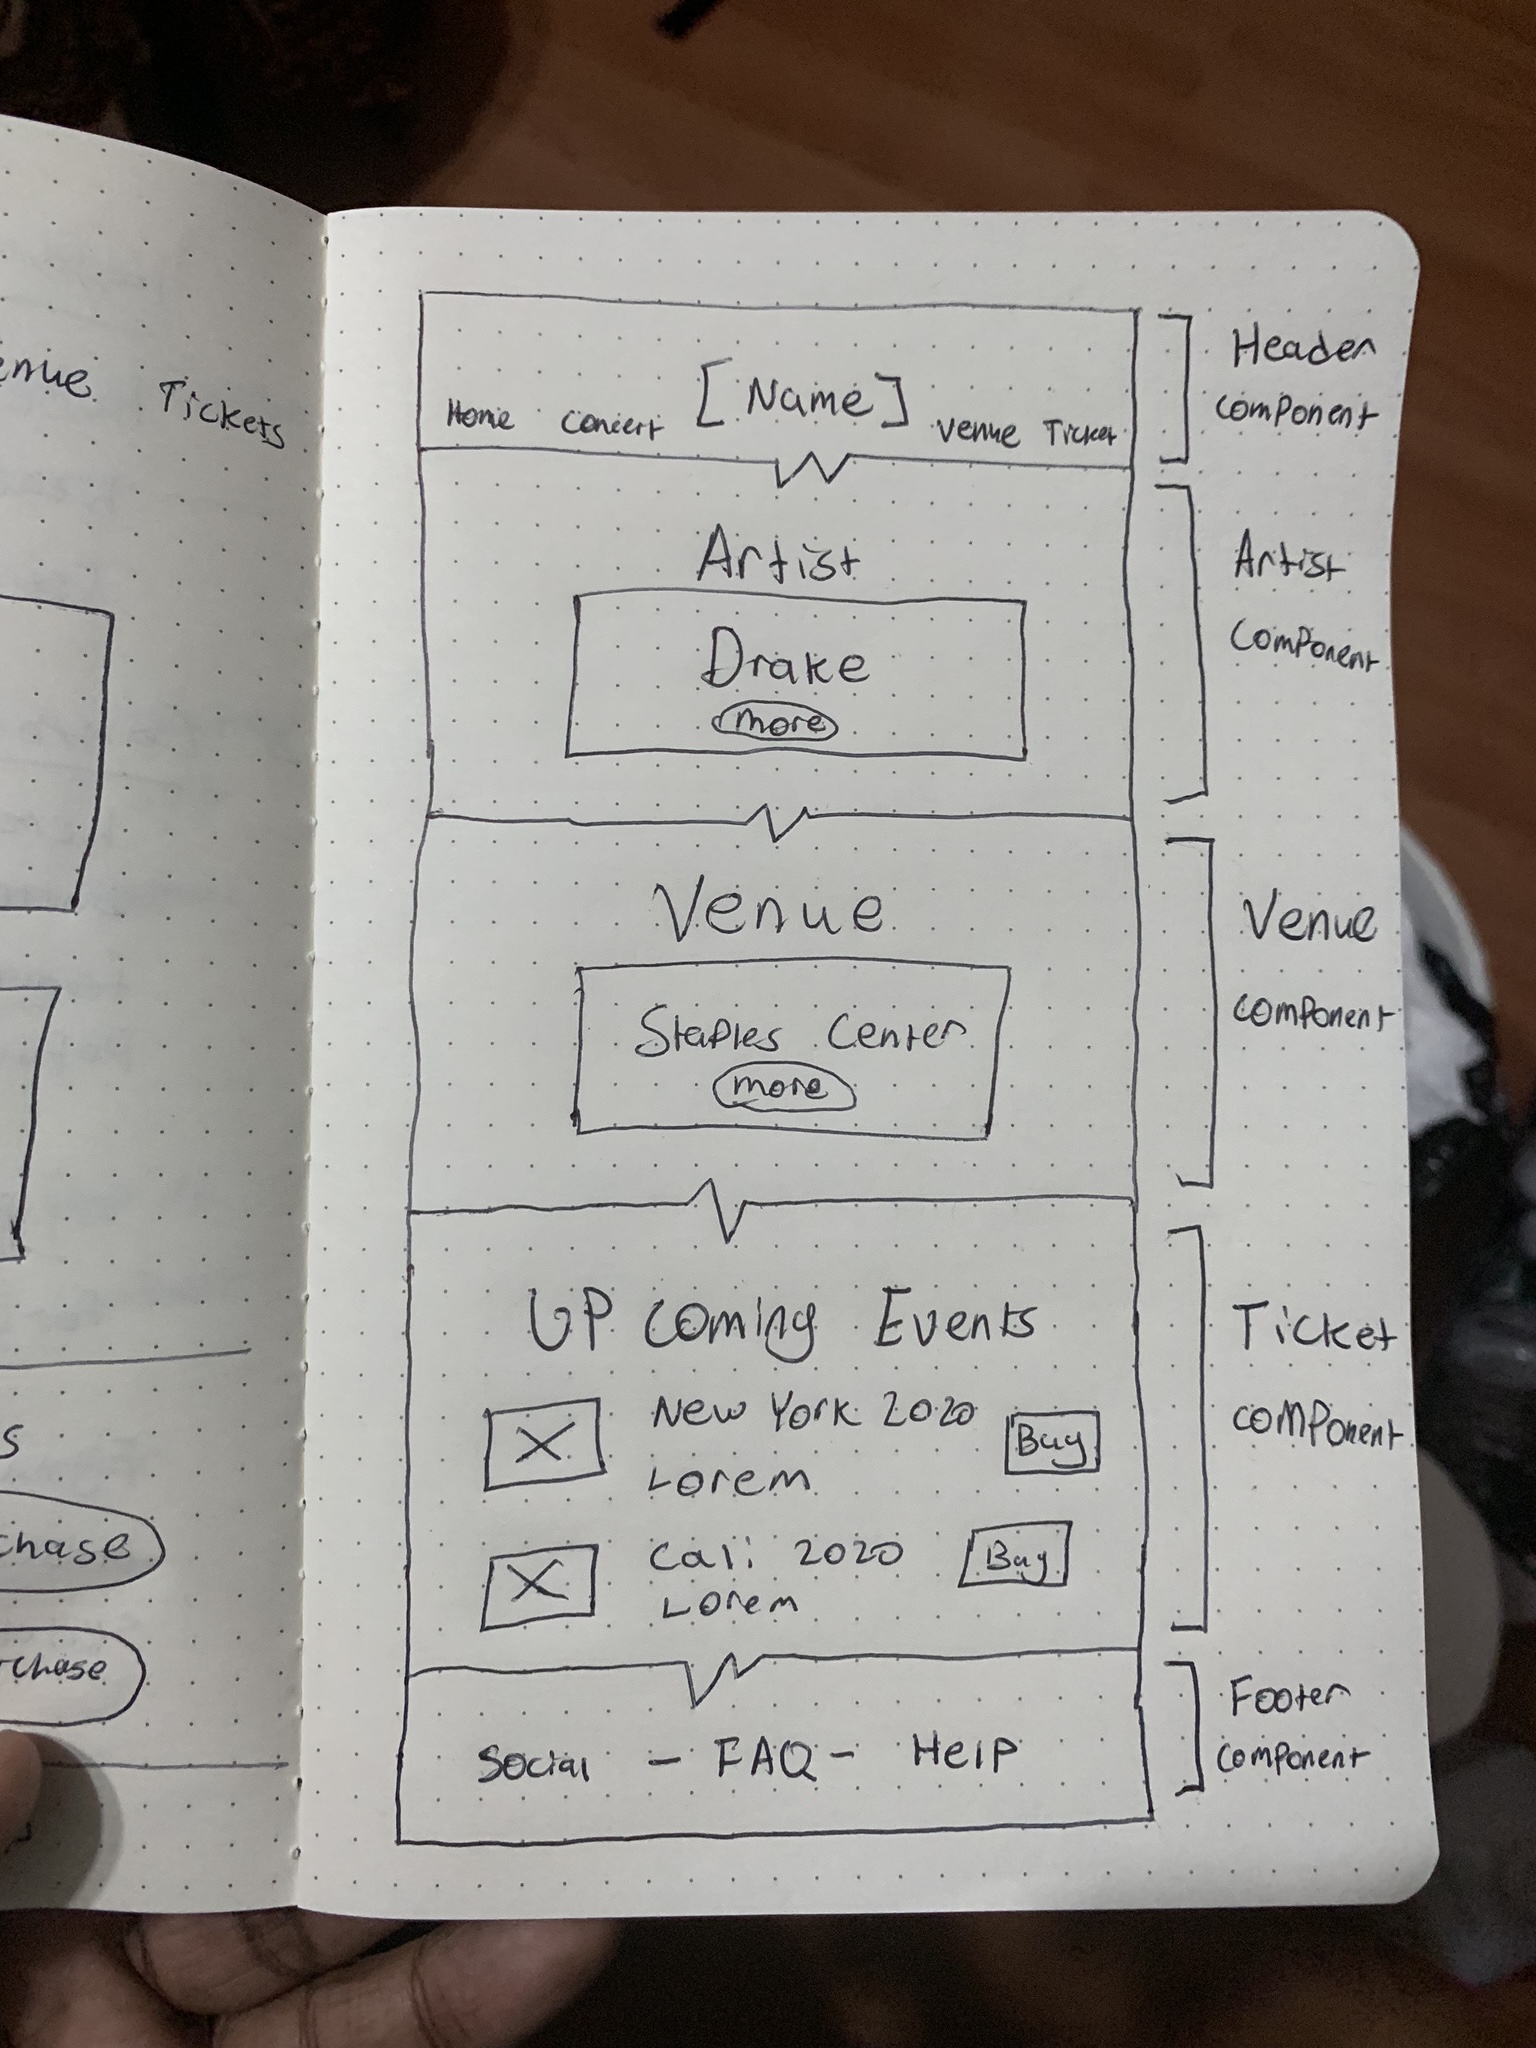 Tickets
chase
chase
[Name]
Home Concert Venue Ticket
Header
component
Artist
Drake
more
Artist
component
Venue
Staples Center
more
Venue
component
UP coming Events
New York 2020
Lorem
Buy
Cali 2020
Lorem
Buy
Ticket
component
Social - FAQ - Help
Footer
component